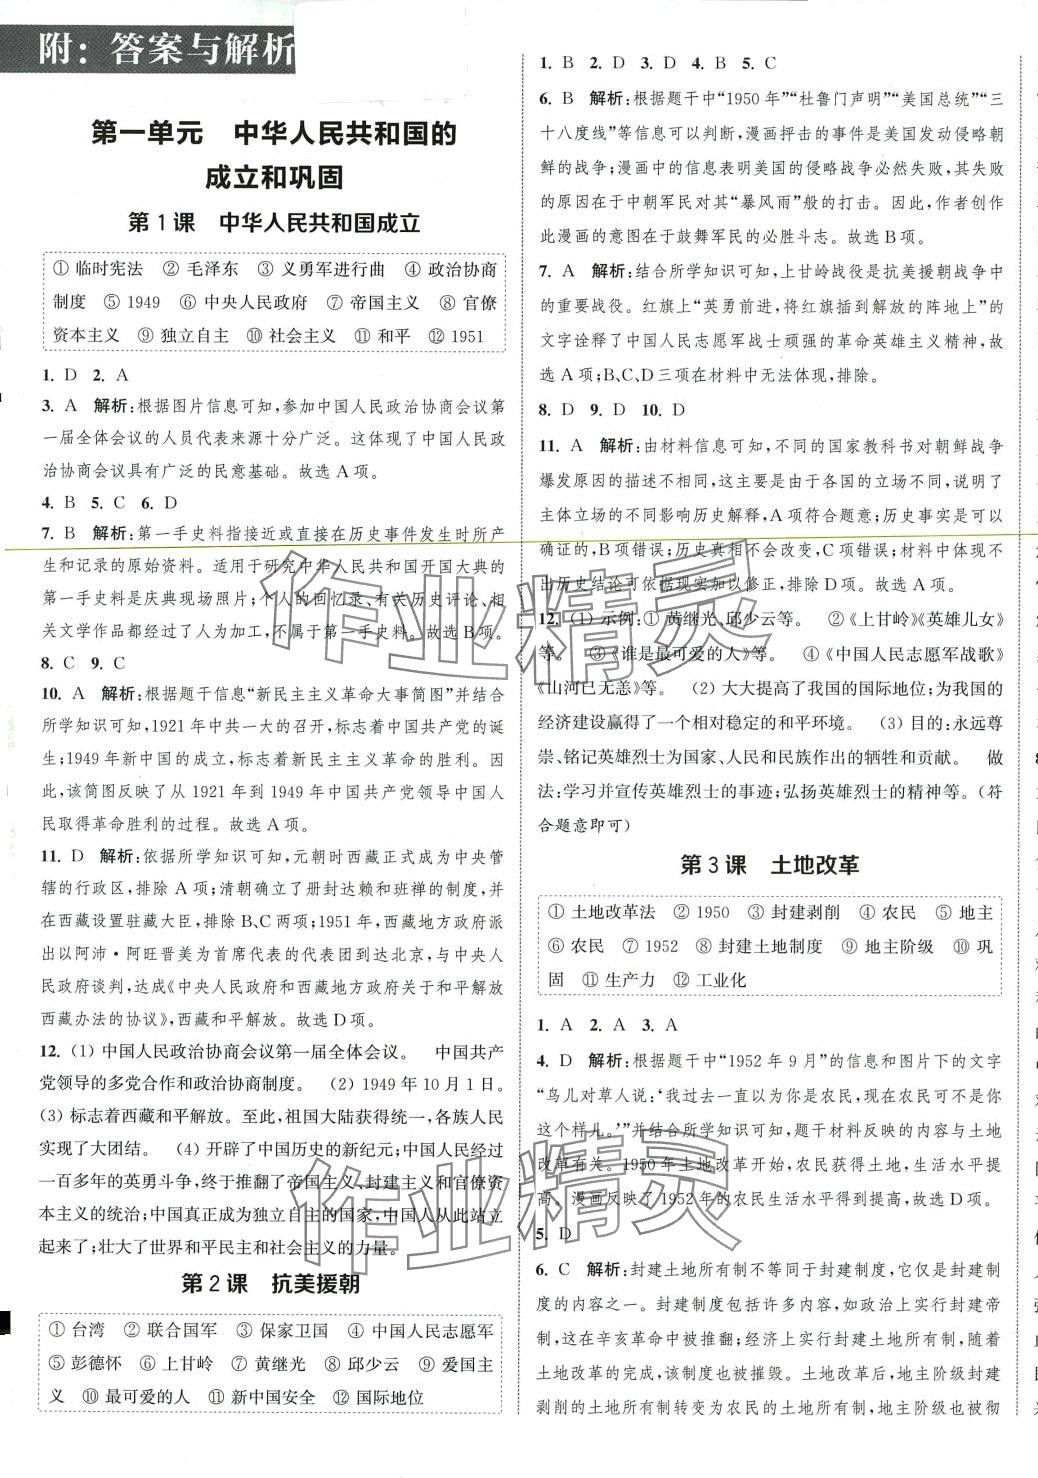 附：答案与解析
第一单元　中华人民共和国的
成立和巩固
第1课　中华人民共和国成立
①临时宪法　②毛泽东　③义勇军进行曲　④政治协商
制度　⑤1949　⑥中央人民政府　⑦帝国主义　⑧官僚
资本主义　⑨独立自主　⑩社会主义　⑪和平　⑫1951
1. D　2. A
3. A　解析:根据图片信息可知,参加中国人民政治协商会议第
一届全体会议的人员代表来源十分广泛。这体现了中国人民政
治协商会议具有广泛的民意基础。故选A项。
4. B　5. C　6. D
7. B　解析:第一手史料指接近或直接在历史事件发生时所产
生和记录的原始资料。适用于研究中华人民共和国开国大典的
第一手史料是庆典现场照片;个人的回忆录、有关历史评论、相
关文学作品都经过了人为加工,不属于第一手史料。故选B项。
8. C　9. C
10. A　解析:根据题干信息“新民主主义革命大事简图”并结合
所学知识可知,1921年中共一大的召开,标志着中国共产党的诞
生;1949年新中国的成立,标志着新民主主义革命的胜利。因
此,该简图反映了从1921年到1949年中国共产党领导中国人
民取得革命胜利的过程。故选A项。
11. D　解析:依据所学知识可知,元朝时西藏正式成为中央管
辖的行政区,排除A项;清朝确立了册封达赖和班禅的制度,并
在西藏设置驻藏大臣,排除B、C两项;1951年,西藏地方政府派
出以阿沛·阿旺晋美为首席代表的代表团到达北京,与中央人
民政府谈判,达成《中央人民政府和西藏地方政府关于和平解放
西藏办法的协议》,西藏和平解放。故选D项。
12. (1)中国人民政治协商会议第一届全体会议。　中国共产
党领导的多党合作和政治协商制度。　(2)1949年10月1日。
(3)标志着西藏和平解放。至此,祖国大陆获得统一,各族人民
实现了大团结。　(4)开辟了中国历史的新纪元;中国人民经过
一百多年的英勇斗争,终于推翻了帝国主义、封建主义和官僚资
本主义的统治;中国真正成为独立自主的国家,中国人从此站立
起来了;壮大了世界和平民主和社会主义的力量。
第2课　抗美援朝
①台湾　②联合国军　③保家卫国　④中国人民志愿军
⑤彭德怀　⑥上甘岭　⑦黄继光　⑧邱少云　⑨爱国主
义　⑩最可爱的人　⑪新中国安全　⑫国际地位
1. B　2. D　3. D　4. B　5. C
6. B　解析:根据题干中“1950年”“杜鲁门声明”“美国总统”“三
十八度线”等信息可以判断,漫画抨击的事件是美国发动侵略朝
鲜的战争;漫画中的信息表明美国的侵略战争必然失败,其失败
的原因在于中朝军民对其“暴风雨”般的打击。因此,作者创作
此漫画的意图在于鼓舞军民的必胜斗志。故选B项。
7. A　解析:结合所学知识可知,上甘岭战役是抗美援朝战争中
的重要战役。红旗上“英勇前进,将红旗插到解放的阵地上”的
文字诠释了中国人民志愿军战士顽强的革命英雄主义精神,故
选A项;B、C、D三项在材料中无法体现,排除。
8. D　9. D　10. D
11. A　解析:由材料信息可知,不同的国家教科书对朝鲜战争
爆发原因的描述不相同,这主要是由于各国的立场不同,说明了
主体立场的不同影响历史解释,A项符合题意;历史事实是可以
确证的,B项错误;历史真相不会改变,C项错误;材料中体现不
出历史结论可依据现实加以修正,排除D项。故选A项。
12. (1)示例:①黄继光、邱少云等。　②《上甘岭》《英雄儿女》
等。　③《谁是最可爱的人》等。　④《中国人民志愿军战歌》
《山河已无恙》等。　(2)大大提高了我国的国际地位;为我国的
经济建设赢得了一个相对稳定的和平环境。　(3)目的:永远尊
崇、铭记英雄烈士为国家、人民和民族作出的牺牲和贡献。　做
法:学习并宣传英雄烈士的事迹;弘扬英雄烈士的精神等。(符
合题意即可)
第3课　土地改革
①土地改革法　②1950　③封建剥削　④农民　⑤地主
⑥农民　⑦1952　⑧封建土地制度　⑨地主阶级　⑩巩
固　⑪生产力　⑫工业化
1. A　2. A　3. A
4. D　解析:根据题干中“1952年9月”的信息和图片下的文字
“鸟儿对草人说:‘我过去一直以为你是农民,现在农民可不是你
这个样儿。’”并结合所学知识可知,题干材料反映的内容与土地
改革有关。1950年土地改革开始,农民获得土地,生活水平提
高。漫画反映了1952年的农民生活水平得到提高,故选D项。
5. D
6. C　解析:封建土地所有制不等同于封建制度,它仅是封建制
度的内容之一。封建制度包括许多内容,如政治上实行封建帝
制,这在辛亥革命中被推翻;经济上实行封建土地所有制,随着
土地改革的完成,该制度也被摧毁。土地改革后,地主阶级封建
剥削的土地所有制转变为农民的土地所有制,地主阶级也被彻
作业精灵
作业精灵